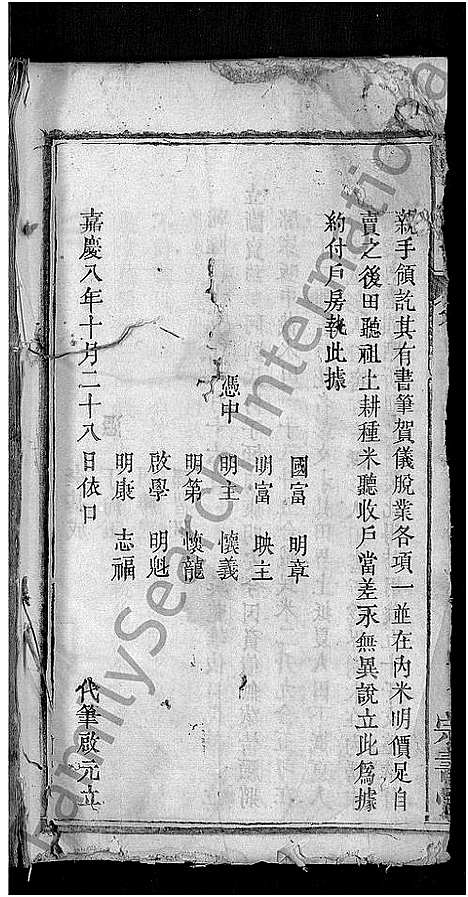 親手領訖其有書筆賀儀脫業各項一並在內米明價足自
賣之後田聽祖土耕種米聽收戶當差永無異說立此為據
約付戶房執此據
國富 明章
明富 映主
憑中 明主 懷義
明第 懷龍
啟學 明魁
明康 志福
嘉慶八年十月二十八日依口 代筆啟元立
FamilySearch International